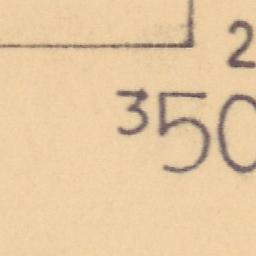 2
³50